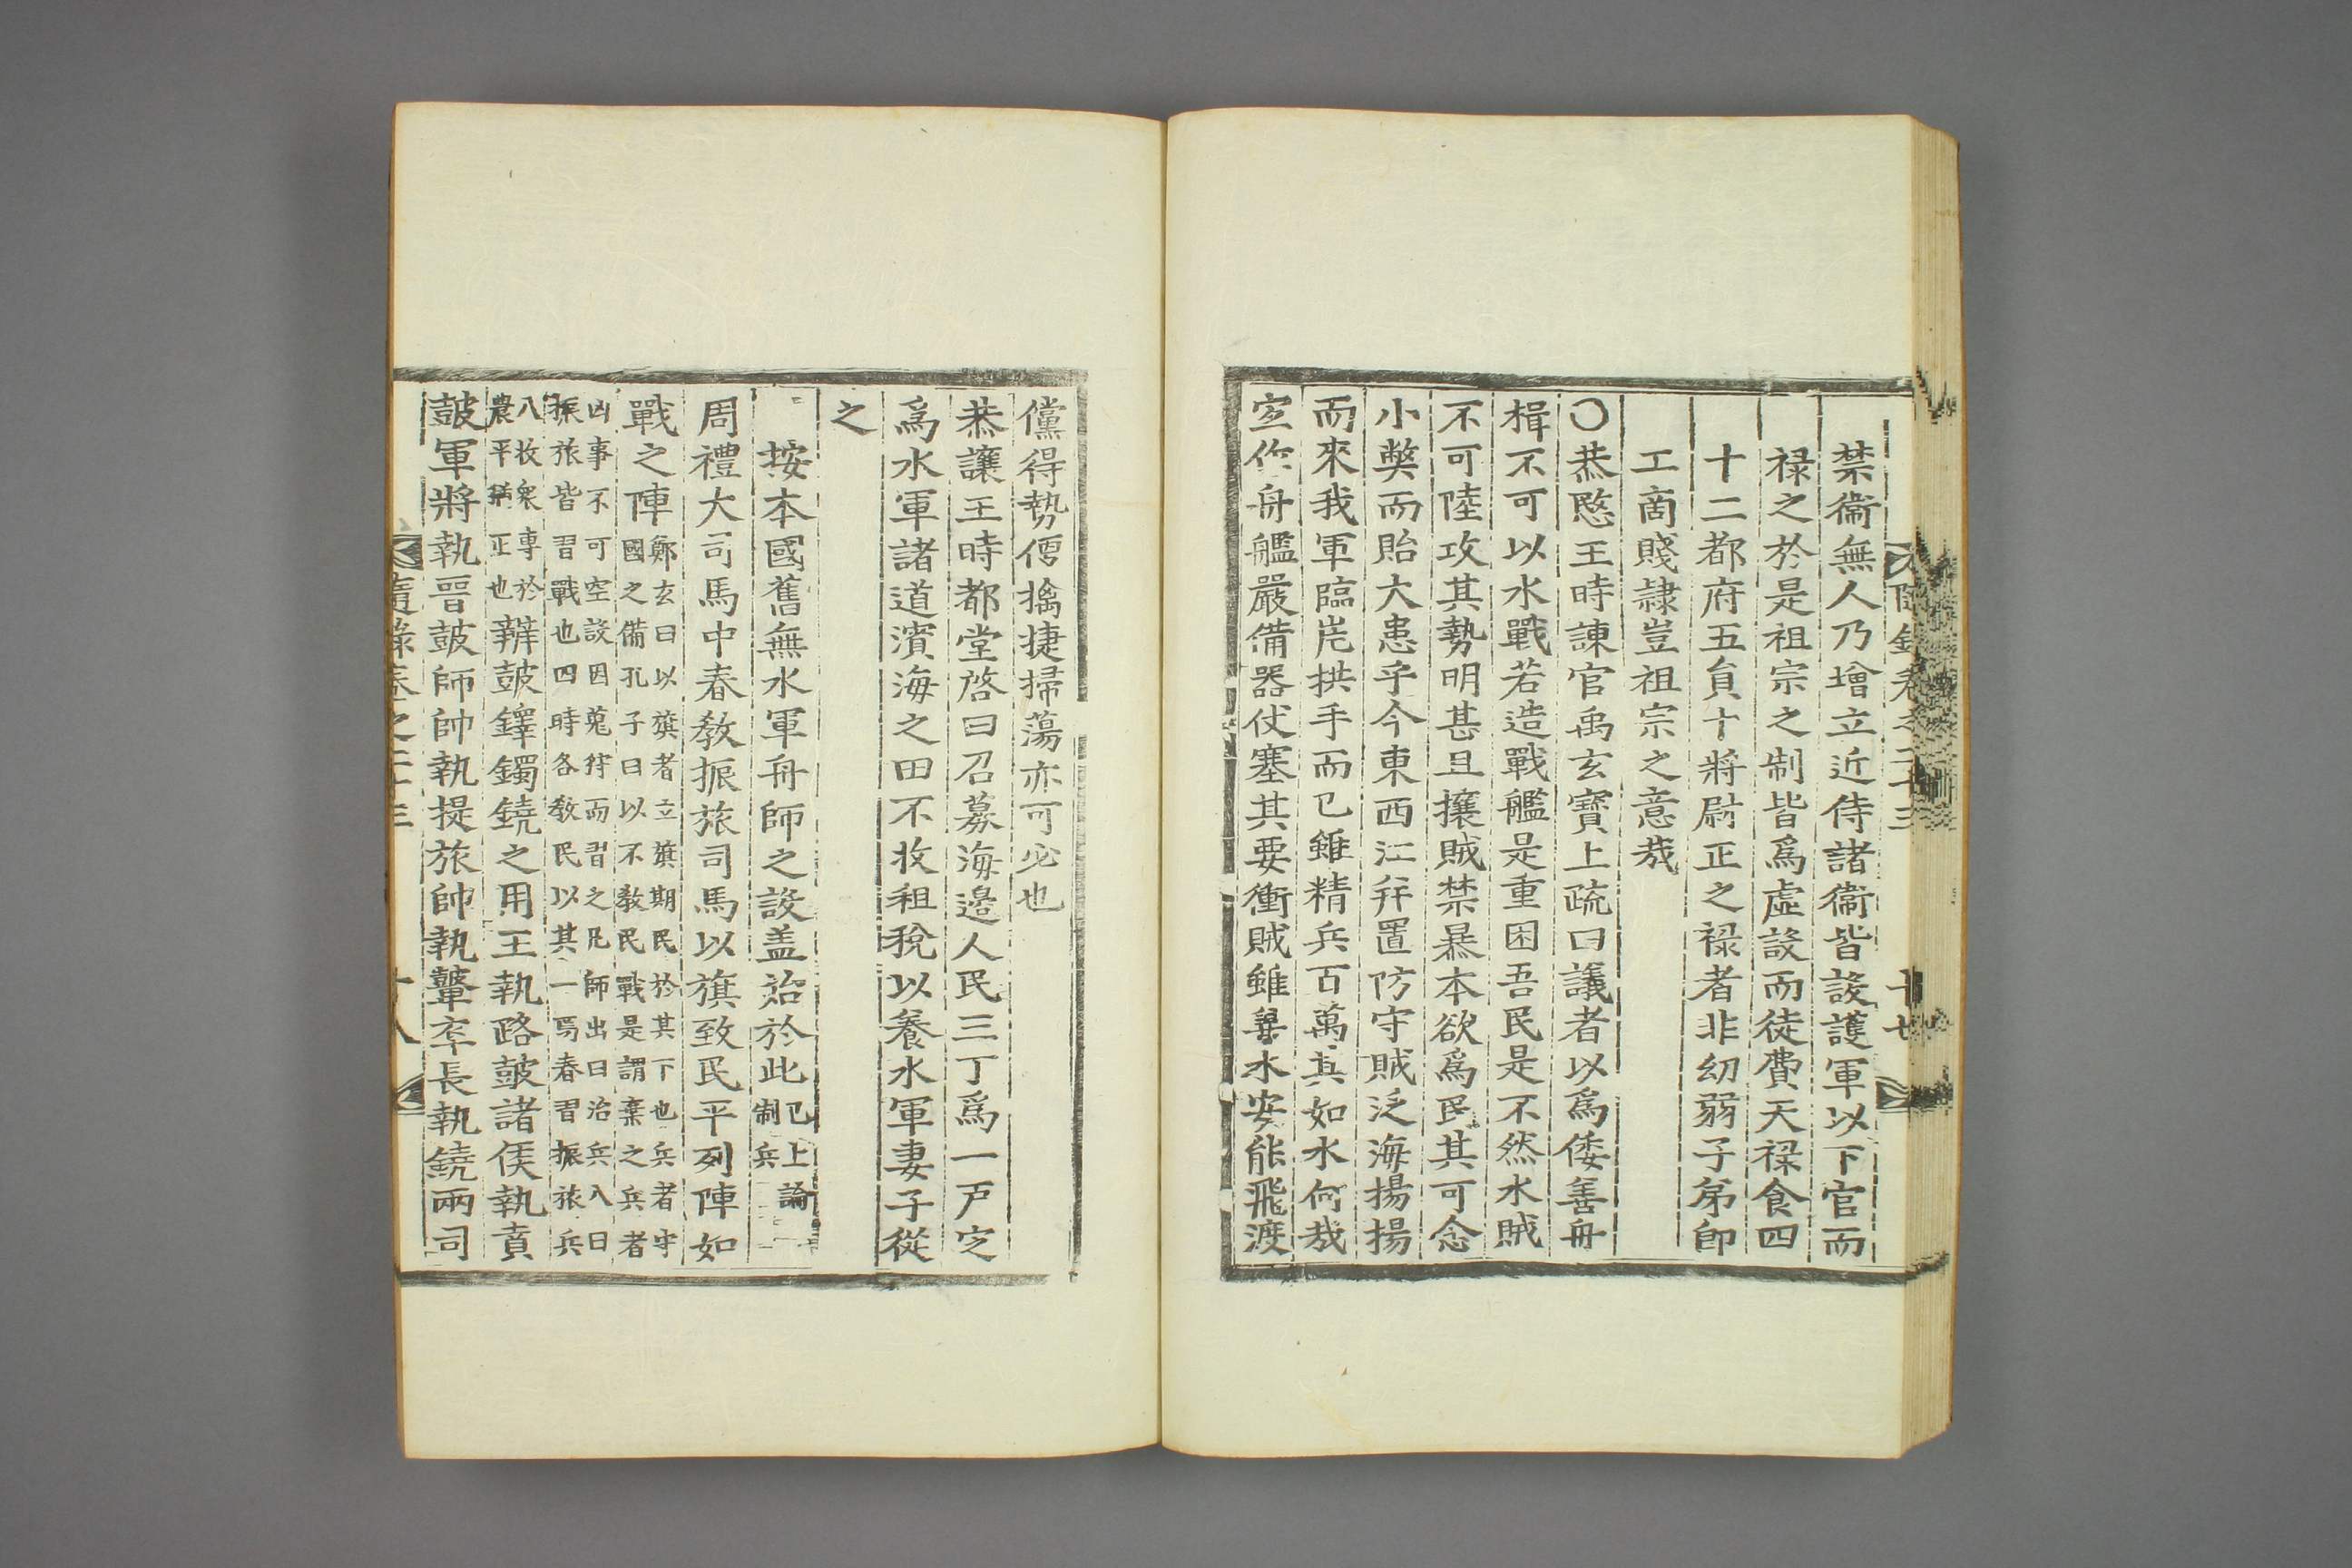 隨錄卷之二十三 十七
禁衛無人乃增立近侍諸衛皆設護軍以下官而
禄之於是祖宗之制皆爲虛設而徒費天禄食四
十二都府五貟十將尉正之禄者非幼弱子弟卽
工商賤隷豈祖宗之意㦲
〇恭愍王時諫官禹玄寶上疏曰議者以爲倭善舟
楫不可以水戰若造戰艦是重困吾民是不然水賊
不可陸攻其勢明甚且攘賊禁暴本欲爲民其可念
小獘而貽大患乎今東西江幷置防守賊泛海揚揚
而來我軍臨岸拱手而已雖精兵百萬其如水何㦲
宜作舟艦嚴備器仗塞其要衝賊雖鼻水安能飛渡
儻得勢便擒捷掃蕩亦可必也
恭讓王時都堂啓曰召募海邊人民三丁爲一戶定
爲水軍諸道濱海之田不收租稅以養水軍妻子從
之
按本國舊無水軍舟師之設盖始於此已上論制兵
周禮大司馬中春敎振旅司馬以旗致民平列陣如
戰之陣鄭玄曰以旗者立旗期民於其下也兵者守國之備孔子曰以不敎民戰是謂棄之兵者
凶事不可空設因蒐狩而習之凡師出曰治兵入曰振旅皆習戰也四時各敎民以其一焉春習振旅兵
入收衆專於農平猶正也辨鼓鐸鐲鐃之用王執路鼓諸侯執賁
鼓軍將執晉鼓師帥執提旅帥執鼙卒長執鐃兩司
隨錄卷之二十三 十八